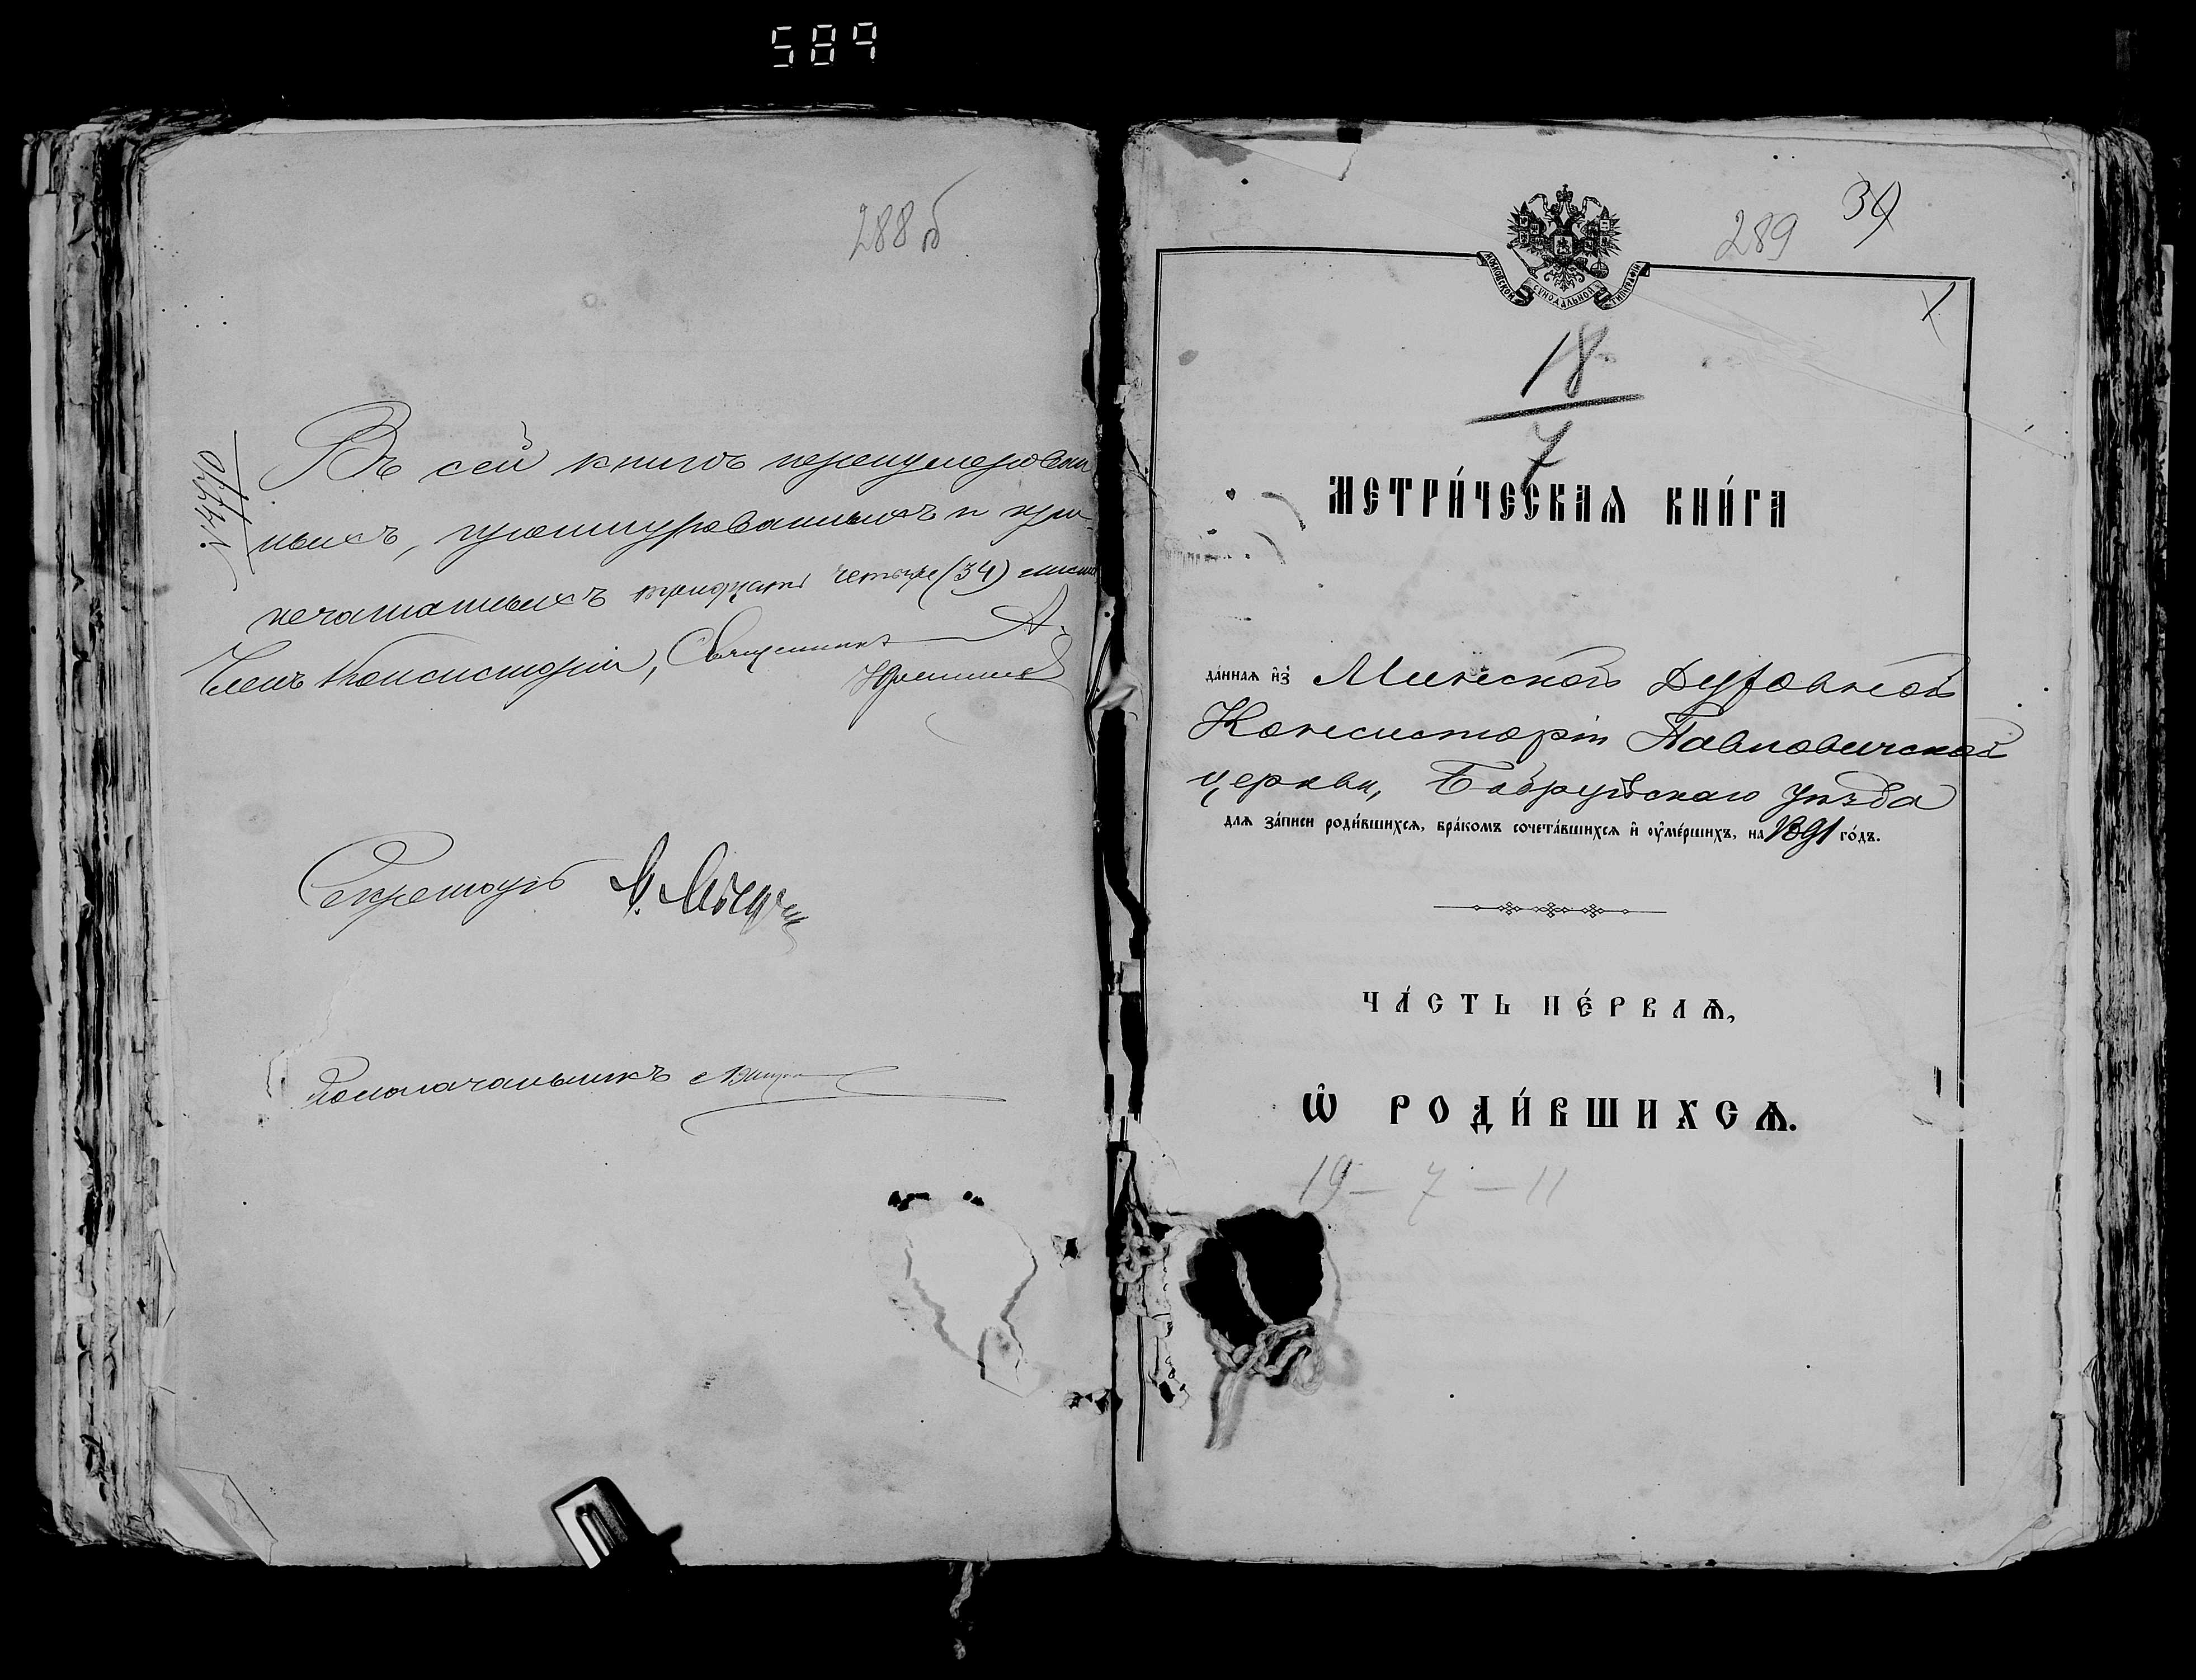 589
288 б
№ 4770
Въ сей книгѣ перенумерован
ныхъ, прошнурованныхъ и при
печатанныхъ тридцать четыре (34) листа
Членъ Консисторіи, Священникъ А.
Секретарь
Столоначальникъ
289 34
МОСКОВСКОЙ СѴНОДАЛЬНОЙ ТИПОГРАФІИ
18
7
МЕТРИ́ЧЕСКАѦ КНИ́ГА
да́ннаѧ и҆з̾ Минской Духовной
Консисторіи Павловичской
церкви, Бобруйскаго уѣзда
длѧ за́писи роди́вшихсѧ, бра́комъ сочета́вшихсѧ и҆ ѹ҆ме́ршихъ, на 1891 го́дъ.
ЧА́СТЬ ПЕ́РВАѦ,
Ѡ҆ РОДИ́ВШИХСѦ.
19 - 7 - 11